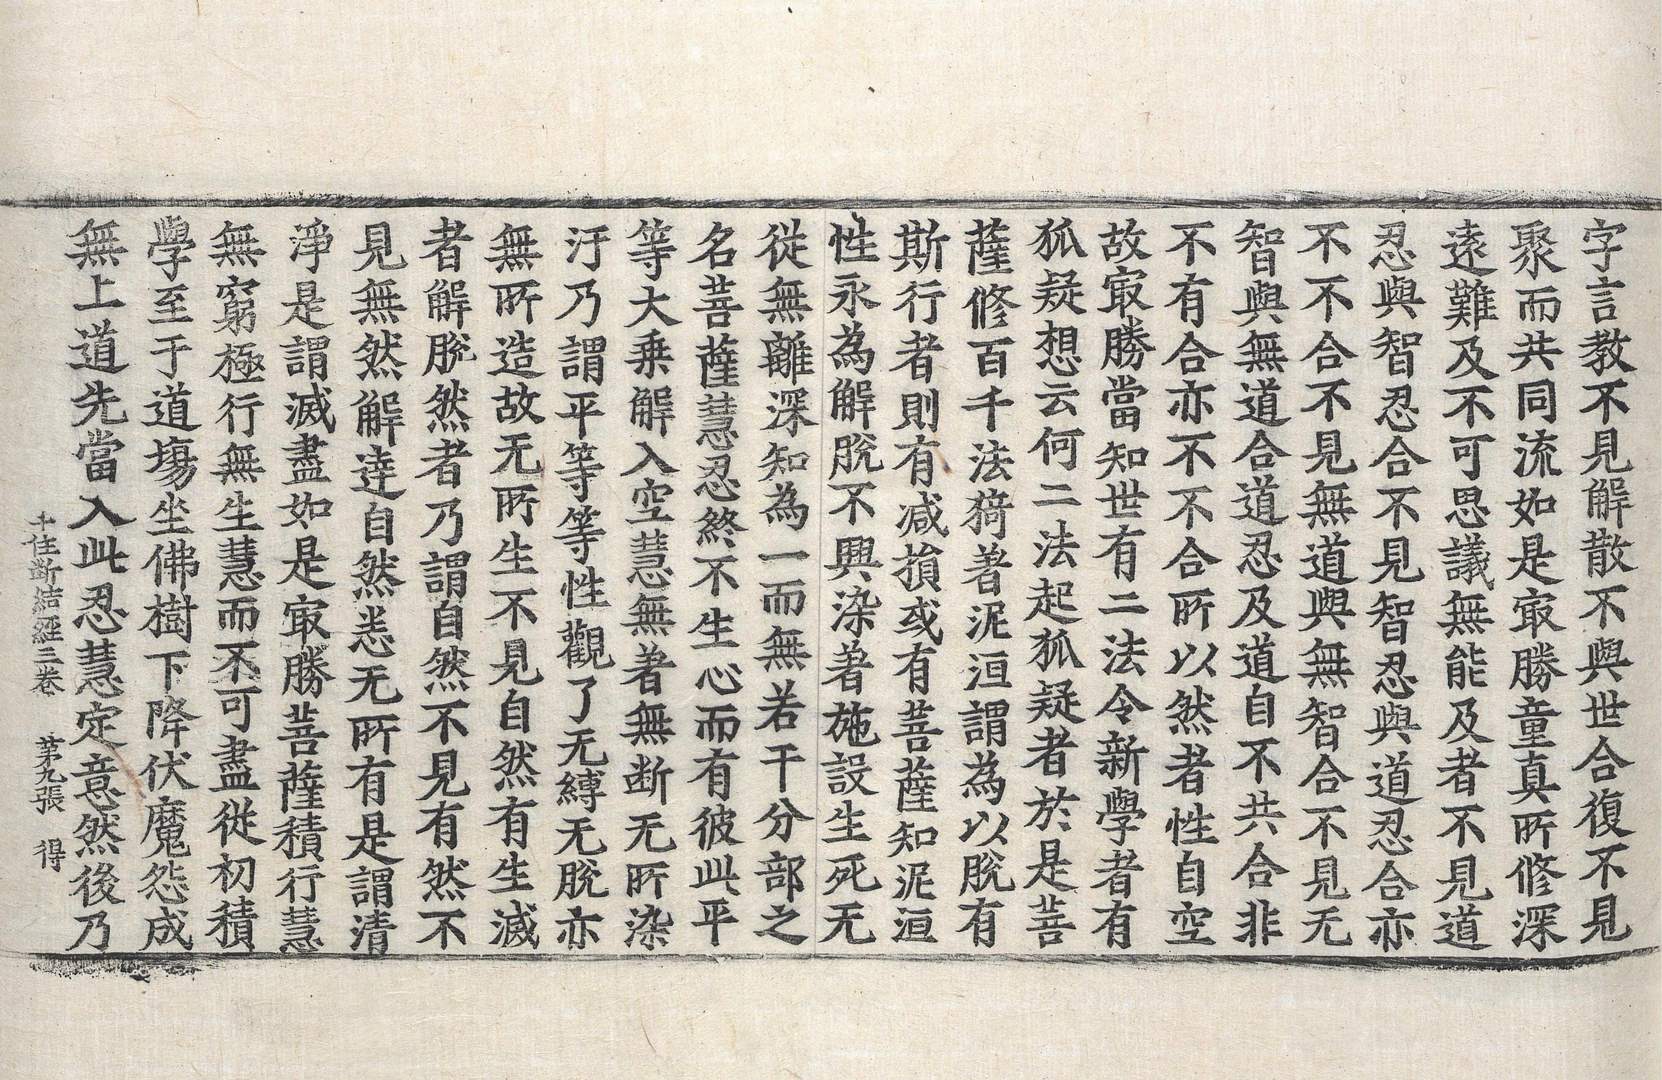 字言教不見解散不與世合復不見
聚而共同流如是㝡勝童真所修深
遠難及不可思議無能及者不見道
忍與智忍合不見智忍與道忍合亦
不不合不見無道與無智合不見无
智與無道合道忍及道自不共合非
不有合亦不不合所以然者性自空
故㝡勝當知世有二法令新學者有
狐疑想云何二法起狐疑者於是菩
薩修百千法猗著泥洹謂為以脫有
斯行者則有減損或有菩薩知泥洹
性永為解脫不興染著施設生死无
從無離深知為一而無若干分部之
名菩薩慧忍終不生心而有彼此平
等大乘解入空慧無著無断无所染
汙乃謂平等等性觀了无縛无脫亦
無所造故无所生不見自然有生滅
者解脫然者乃謂自然不見有然不
見無然解達自然悉无所有是謂清
淨是謂滅盡如是㝡勝菩薩積行慧
無窮極行無生慧而不可盡從初積
學至于道場坐佛樹下降伏魔怨成
無上道先當入此忍慧定意然後乃
十住斷結經三卷 第九張 得